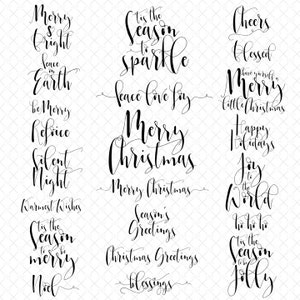 Merry
&
Bright
Peace
on
Earth
be Merry
Rejoice
Silent
Night
Warmest Wishes
'tis the
Season
to be
merry
Noel
'tis the
Season
to
sparkle
Peace Love Joy
Merry
Christmas
Merry Christmas
Season's
Greetings
Christmas Greetings
blessings
Cheers
blessed
have yourself a
Merry
little Christmas
Happy
Holidays
Joy
to the
World
ho ho ho
'tis the
Season
to be
Jolly